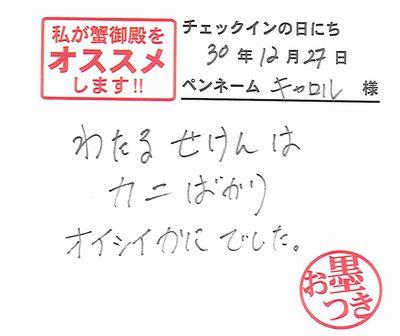 私が蟹御殿を
オススメ
します!!
チェックインの日にち
30年12月27日
ペンネーム キャロル 様
わたる せけんは
カニ ばかり
オイシイ かに でした。
お墨つき